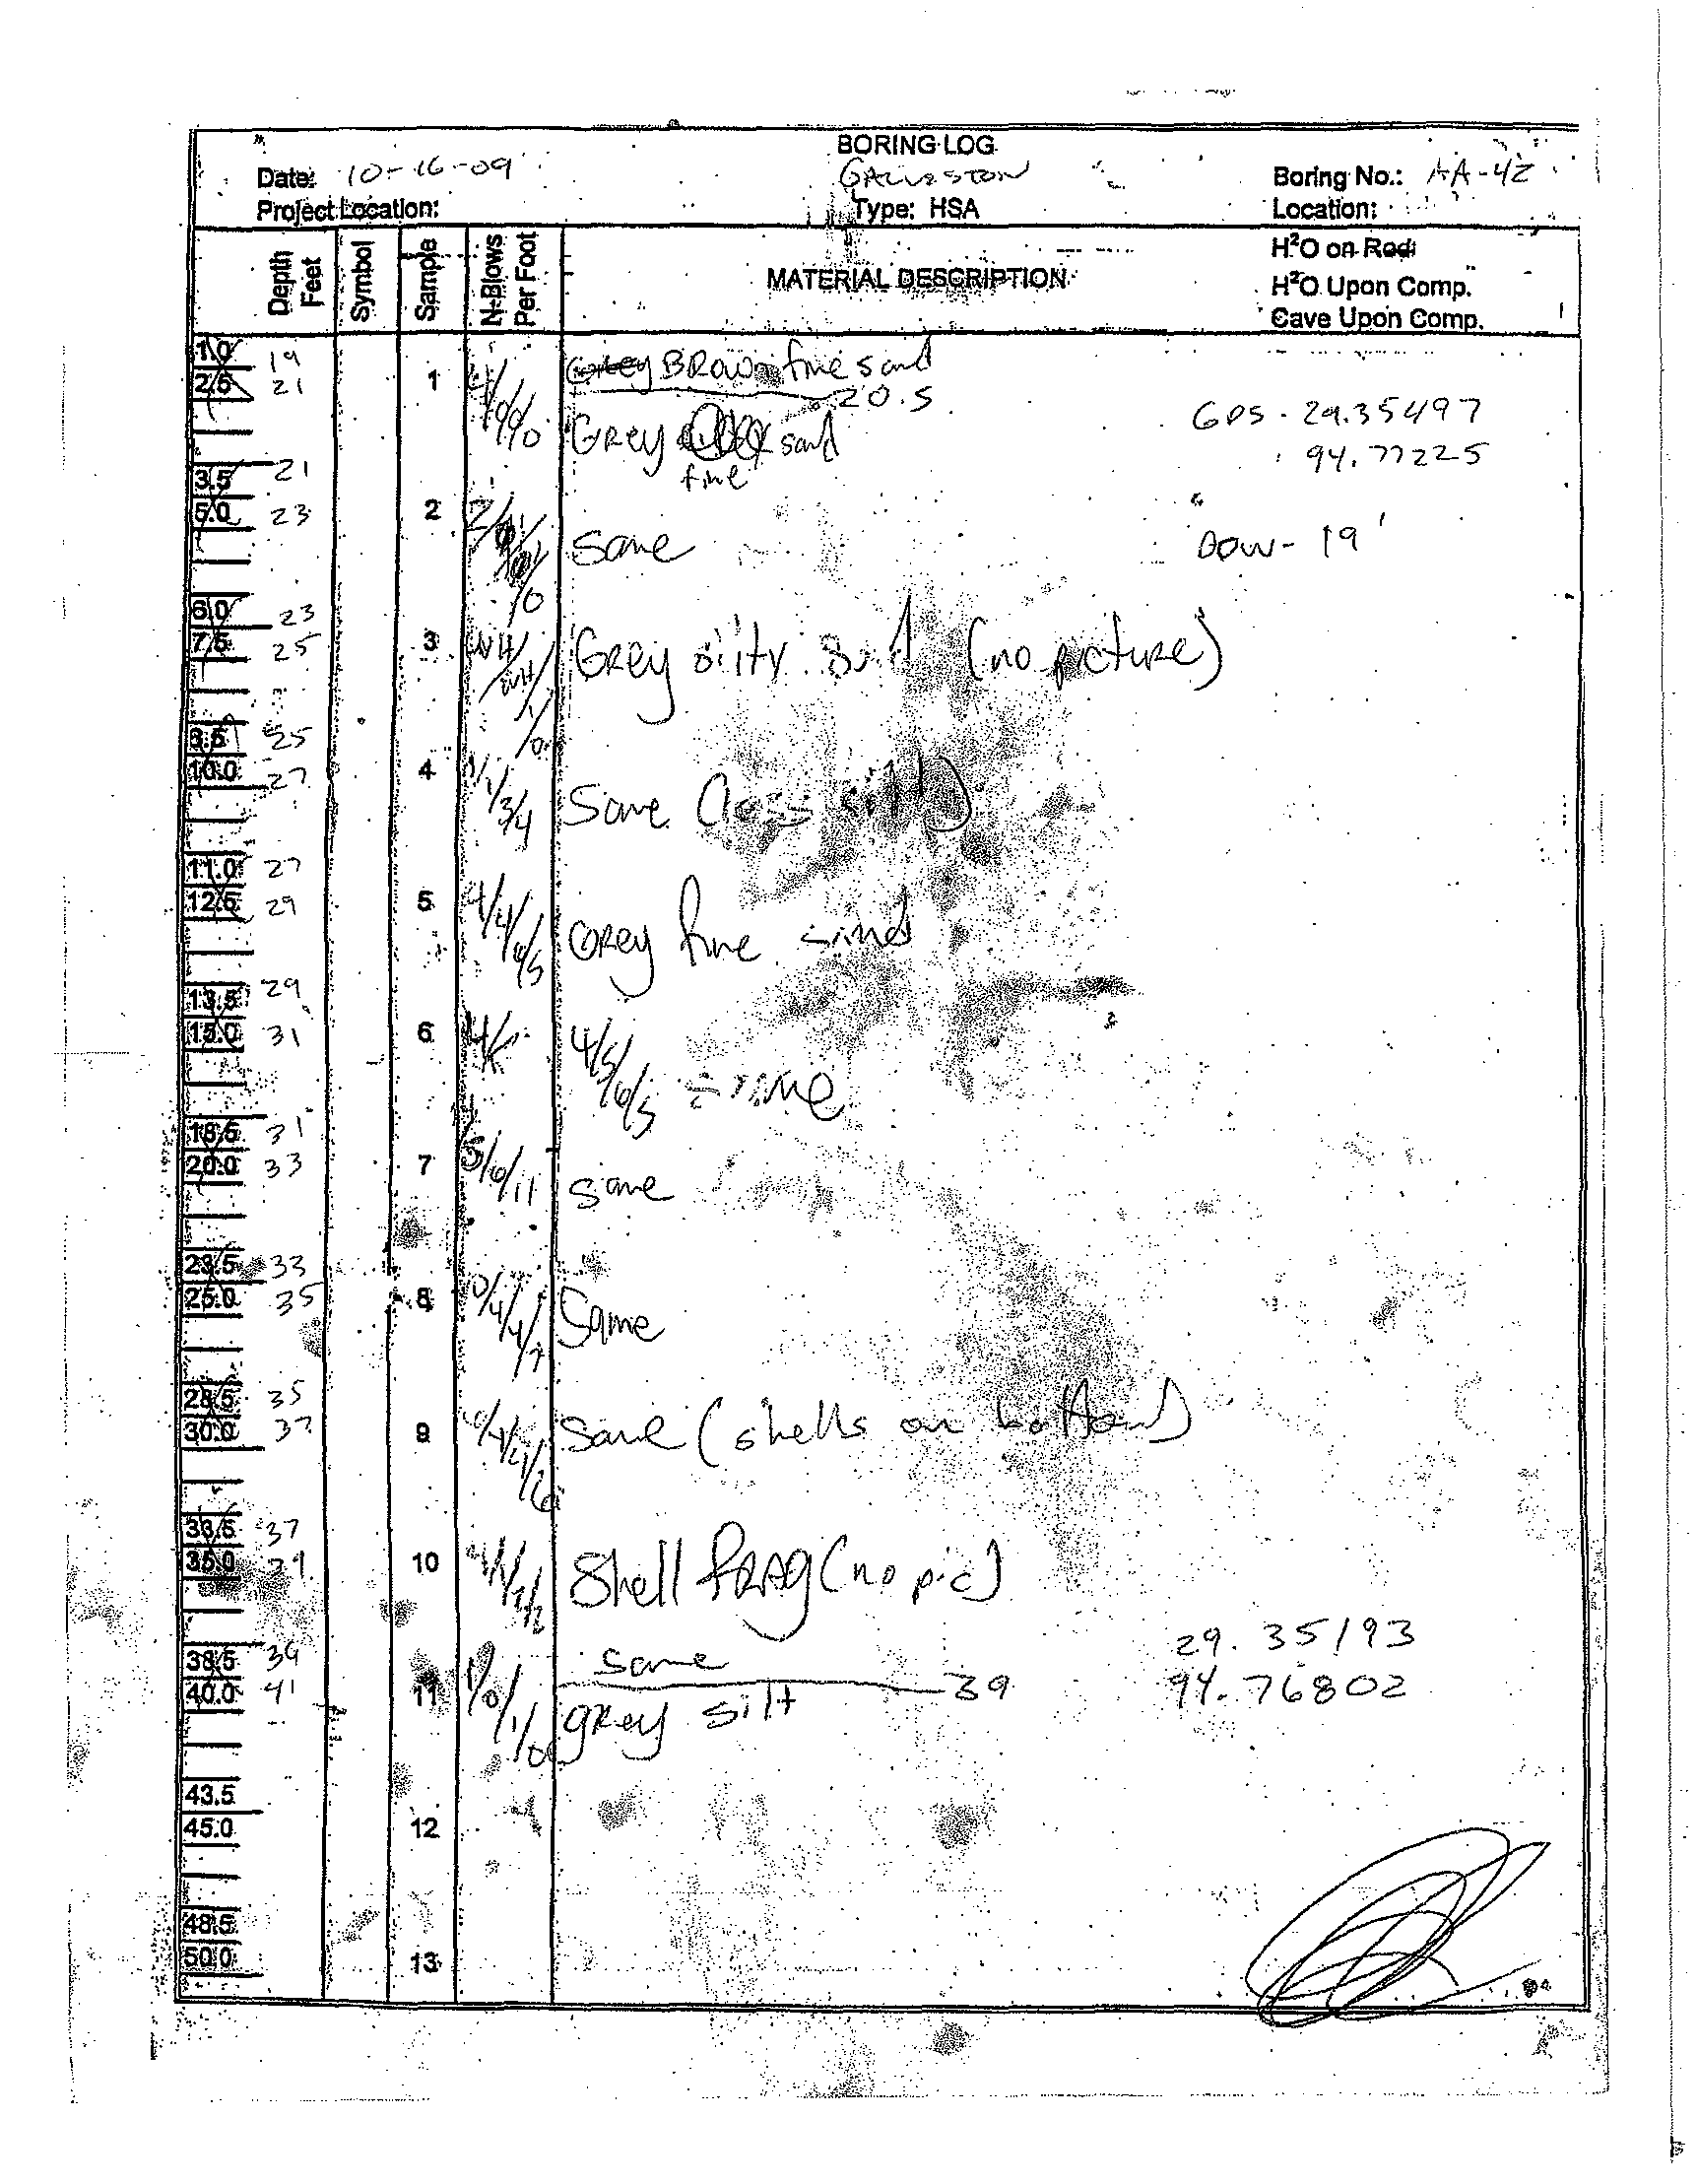 BORING LOG
Date: 10-16-09
GALVESTON
Boring No.: AA-42
Project Location:
Type: HSA
Location:
Depth Feet
Symbol
Sample
N-Blows Per Foot
MATERIAL DESCRIPTION
H²O on Rod:
H²O Upon Comp.
Cave Upon Comp.
1.0 19
2.5 21
1
Grey BROWN fine sand
20.5
GREY sand
fine
GPS - 29.35497
94.77225
3.5 21
5.0 23
2
same
DOW- 19'
6.0 23
7.5 25
3 WH/WH/1/0
GREY silty sand (no picture)
8.5 25
10.0 27
4 1/1/3/4
Same (less silt)
11.0 27
12.5 29
5 4/4/6/5
GREY fine sand
13.5 29
15.0 31
6
4/5/6/5 same
18.5 31
20.0 33
7 5/6/11
same
23.5 33
25.0 35
8 0/4/4/7
Same
28.5 35
30.0 37
9
Same (shells on bottom)
33.5 37
35.0 39
10
Shell FRAG (no pic)
29.35193
38.5 39
same
39
94.76802
40.0 41
11 1/0/1/0
grey silt
43.5
45.0
12
48.5
50.0
13